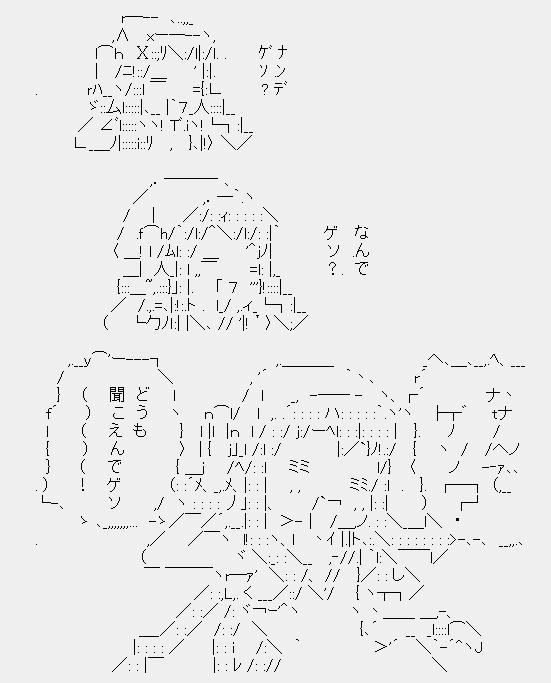 ナンデ
ゲソ?
なんで
ゲソ?
どうも
聞こえんでゲソ
!